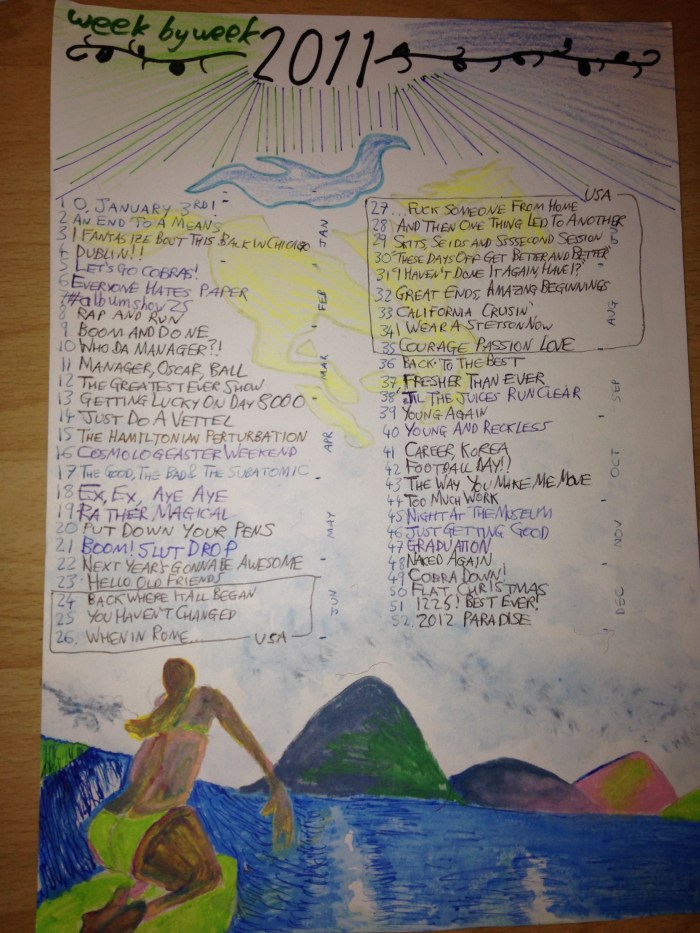 week by week
2011
1 O, JANUARY 3RD!
2 AN END TO A MEANS
3 I FANTASIZE BOUT THIS BACK IN CHICAGO
4 DUBLIN!!
5 LET'S GO COBRAS!
6 EVERYONE HATES PAPER
7 #albumshow25
8 RAP AND RUN
9 BOOM AND DONE
10 WHO DA MANAGER?!
11 MANAGER, OSCAR, BALL
12 THE GREATEST EVER SHOW
13 GETTING LUCKY ON DAY 8000
14 JUST DO A VETTEL
15 THE HAMILTONIAN PERTURBATION
16 COSMOLOGEASTER WEEKEND
17 THE GOOD, THE BAD & THE SUBATOMIC
18 EX, EX, AYE AYE
19 RATHER MAGICAL
20 PUT DOWN YOUR PENS
21 BOOM! SLUT DROP
22 NEXT YEAR'S GONNA BE AWESOME
23 HELLO OLD FRIENDS
24 BACK WHERE IT ALL BEGAN
25 YOU HAVEN'T CHANGED
26. WHEN IN ROME...
USA
JAN
FEB
MAR
APR
MAY
JUN
USA
27... FUCK SOMEONE FROM HOME
28 AND THEN ONE THING LED TO ANOTHER
29 SKITS, SEIDS AND SSSSECOND SESSION
30 "THESE DAYS OFF GET BETTER AND BETTER"
31 "I HAVEN'T DONE IT AGAIN, HAVE I?"
32 GREAT ENDS, AMAZING BEGINNINGS
33 CALIFORNIA CRUSIN'
34 I WEAR A STETSON NOW
35 COURAGE PASSION LOVE
36 BACK TO THE BEST
37 FRESHER THAN EVER
38 'TIL THE JUICES RUN CLEAR
39 YOUNG AGAIN
40 YOUNG AND RECKLESS
41 CAREER, KOREA
42 FOOTBALL DAY!?
43 THE WAY YOU MAKE ME MOVE
44 TOO MUCH WORK
45 NIGHT AT THE MUSEUM
46 JUST GETTING GOOD
47 GRADUATION
48 NAKED AGAIN
49 COBRA DOWN!
50 FLAT CHRISTMAS
51 1225! BEST EVER!
52. 2012 PARADISE
AUG
SEP
OCT
NOV
DEC